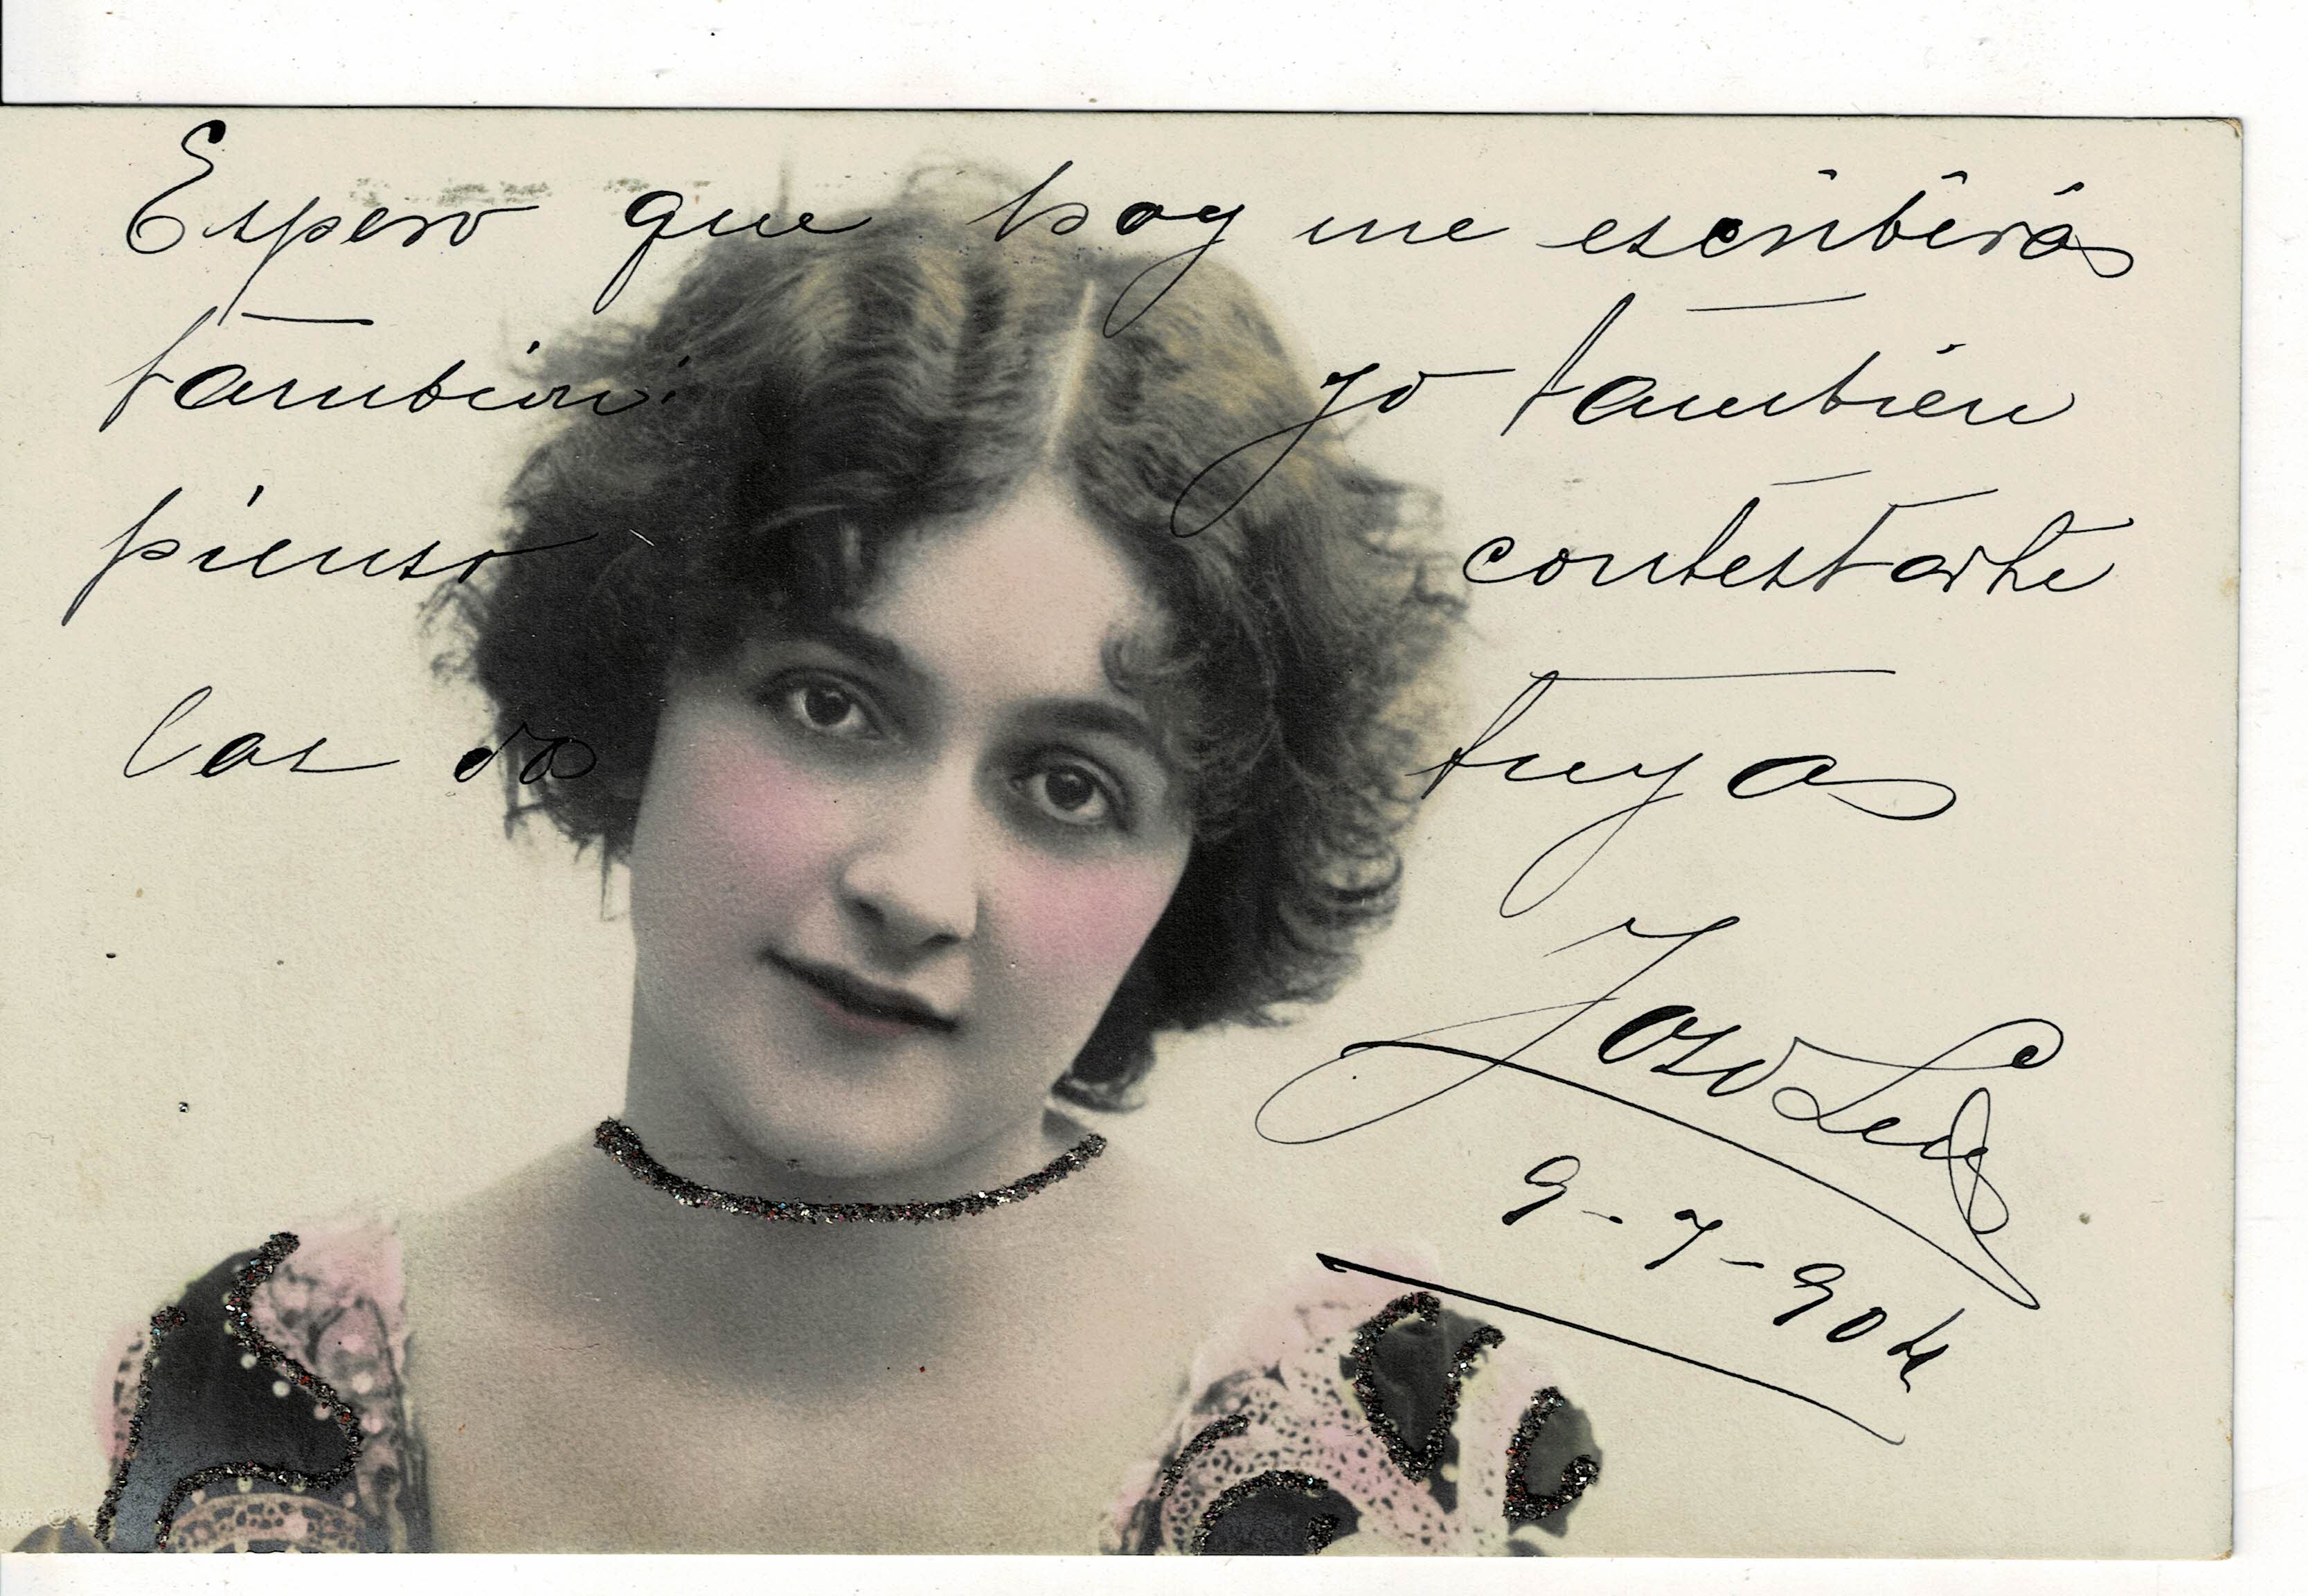 Espero que hoy me escribirás
también: yo también
pienso contestarte
las dos tuyas
José
9-7-904